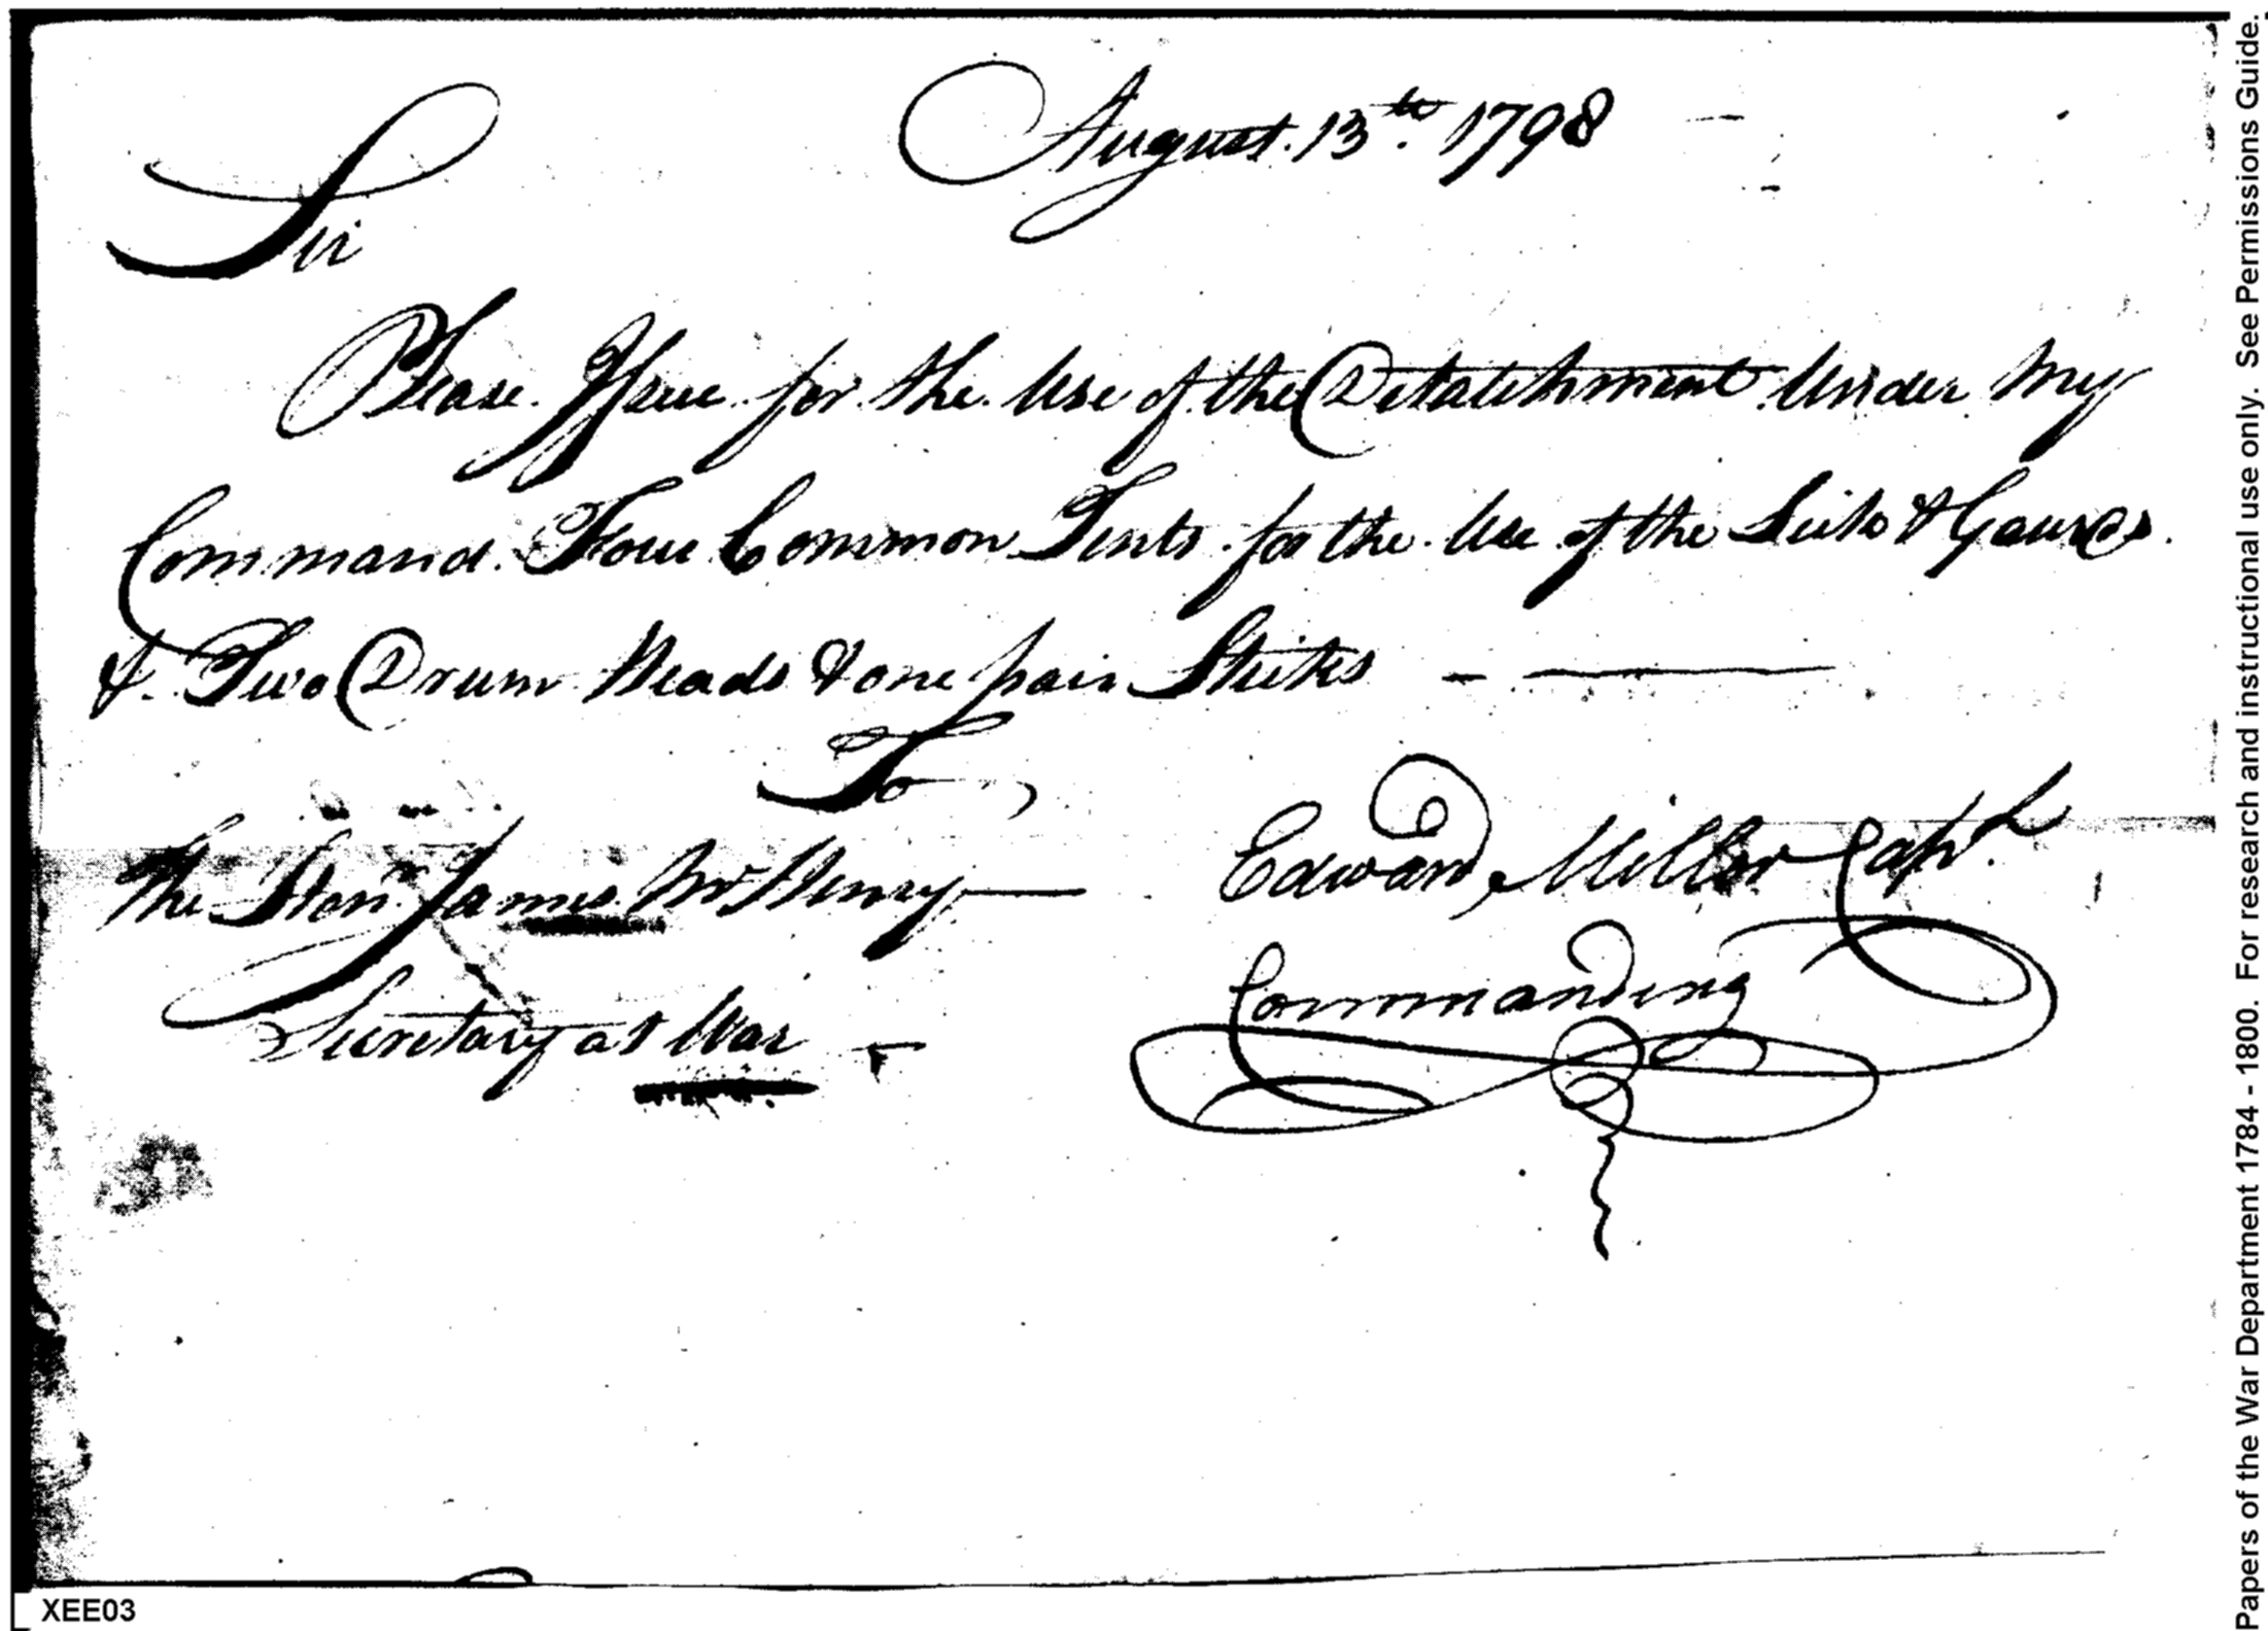 August. 13th. 1798
Sir
Please. Issue. for. the. Use of. the Detatchment. Under. My
Command. Four Common Tents. for the. Use of the Sick & Gaurds.
&. Two Drum Heads & one pair Sticks
To
The Honl. James McHenry
Edward Miller Capt.
Secretary at War
Commanding
XEE03
Papers of the War Department 1784 - 1800. For research and instructional use only. See Permissions Guide.